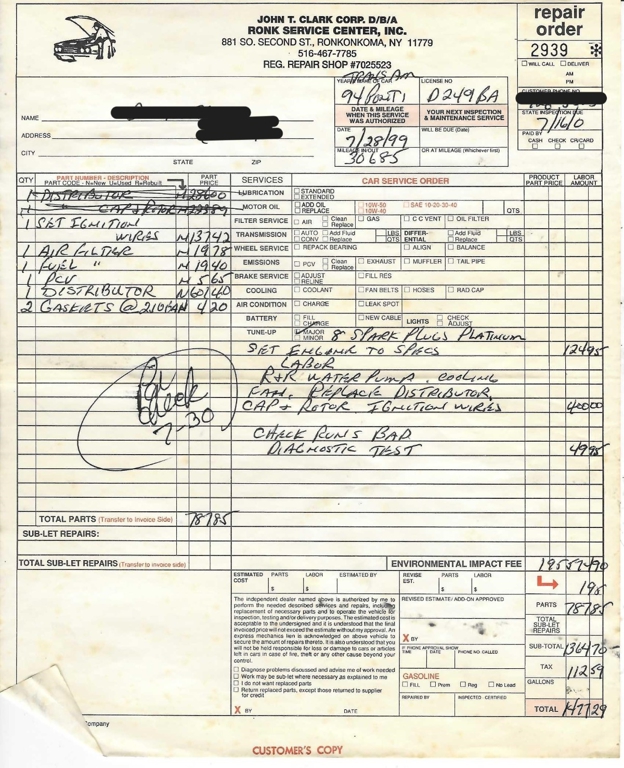 JOHN T. CLARK CORP. D/B/A
RONK SERVICE CENTER, INC.
881 SO. SECOND ST., RONKONKOMA, NY 11779
516-467-7785
REG. REPAIR SHOP #7025523
repair
order
2939
WILL CALL DELIVER
AM
PM
CUSTOMER PHONE NO.
STATE INSPECTION DUE
7/16/0
PAID BY
CASH CHECK CR/CARD
TRANS AM
94 PONTI
LICENSE NO
D249BA
DATE & MILEAGE
WHEN THIS SERVICE
WAS AUTHORIZED
YOUR NEXT INSPECTION
& MAINTENANCE SERVICE
DATE
7/28/99
WILL BE DUE (Date)
MILEAGE IN/OUT
30685
OR AT MILEAGE (Whichever first)
NAME
ADDRESS
CITY
STATE ZIP
QTY PART NUMBER - DESCRIPTION PART PRICE
PART CODE - N=New U=Used R=Rebuilt
SERVICES CAR SERVICE ORDER PRODUCT PART PRICE LABOR AMOUNT
1 DISTRIBUTOR N 28600
1 CAP & ROTOR N
1 SET IGNITION
WIRES N 13742
1 AIR FILTER N 1978
1 FUEL " N 1940
1 PCV N 565
1 DISTRIBUTOR N 60140
2 GASKETS @ 210 EA N 420
LUBRICATION STANDARD EXTENDED
MOTOR OIL ADD OIL REPLACE 10W-50 10W-40 SAE 10-20-30-40 QTS
FILTER SERVICE AIR Clean Replace GAS C C VENT OIL FILTER
TRANSMISSION AUTO CONV Add Fluid Replace LBS QTS DIFFER-ENTIAL Add Fluid Replace LBS QTS
WHEEL SERVICE REPACK BEARING ALIGN BALANCE
EMISSIONS PCV Clean Replace EXHAUST MUFFLER TAIL PIPE
BRAKE SERVICE ADJUST RELINE FILL RES
COOLING COOLANT FAN BELTS HOSES RAD CAP
AIR CONDITION CHARGE LEAK SPOT
BATTERY FILL CHARGE NEW CABLE LIGHTS CHECK ADJUST
TUNE-UP MAJOR MINOR 8 SPARK PLUGS PLATINUM
SET ENGINE TO SPECS 12495
LABOR
R&R WATER PUMP. COOLING
FAN, REPLACE DISTRIBUTOR,
CAP & ROTOR IGNITION WIRES 40000
CHECK RUNS BAD
DIAGNOSTIC TEST 4995
Pd
Check
7-30
TOTAL PARTS (Transfer to Invoice Side) 78785
SUB-LET REPAIRS:
TOTAL SUB-LET REPAIRS (Transfer to invoice side)
ENVIRONMENTAL IMPACT FEE 195 57490
195
ESTIMATED COST PARTS LABOR ESTIMATED BY
$ $
REVISE EST. PARTS LABOR
$ $
The independent dealer named above is authorized by me to
perform the needed described services and repairs, including
replacement of necessary parts and to operate the vehicle for
inspection, testing and/or delivery purposes. The estimated cost is
acceptable to the undersigned and it is understood that the final
invoiced price will not exceed the estimate without my approval. An
express mechanics lien is acknowledged on above vehicle to
secure the amount of repairs thereto. It is also understood that you
will not be held responsible for loss or damage to cars or articles
left in cars in case of fire, theft or any other cause beyond your
control.
Diagnose problems discussed and advise me of work needed
Work may be sub-let where necessary as explained to me
I do not want replaced parts
Return replaced parts, except those returned to supplier
for credit
X BY DATE
REVISED ESTIMATE/ ADD-ON APPROVED
X BY
IF PHONE APPROVAL SHOW
TIME DATE PHONE NO. CALLED
GASOLINE
FILL Prem Reg No Lead
REPAIRED BY INSPECTED - CERTIFIED
PARTS 78785
TOTAL SUB-LET REPAIRS
SUB-TOTAL 136470
TAX 11259
GALLONS
TOTAL 147729
Company
CUSTOMER'S COPY